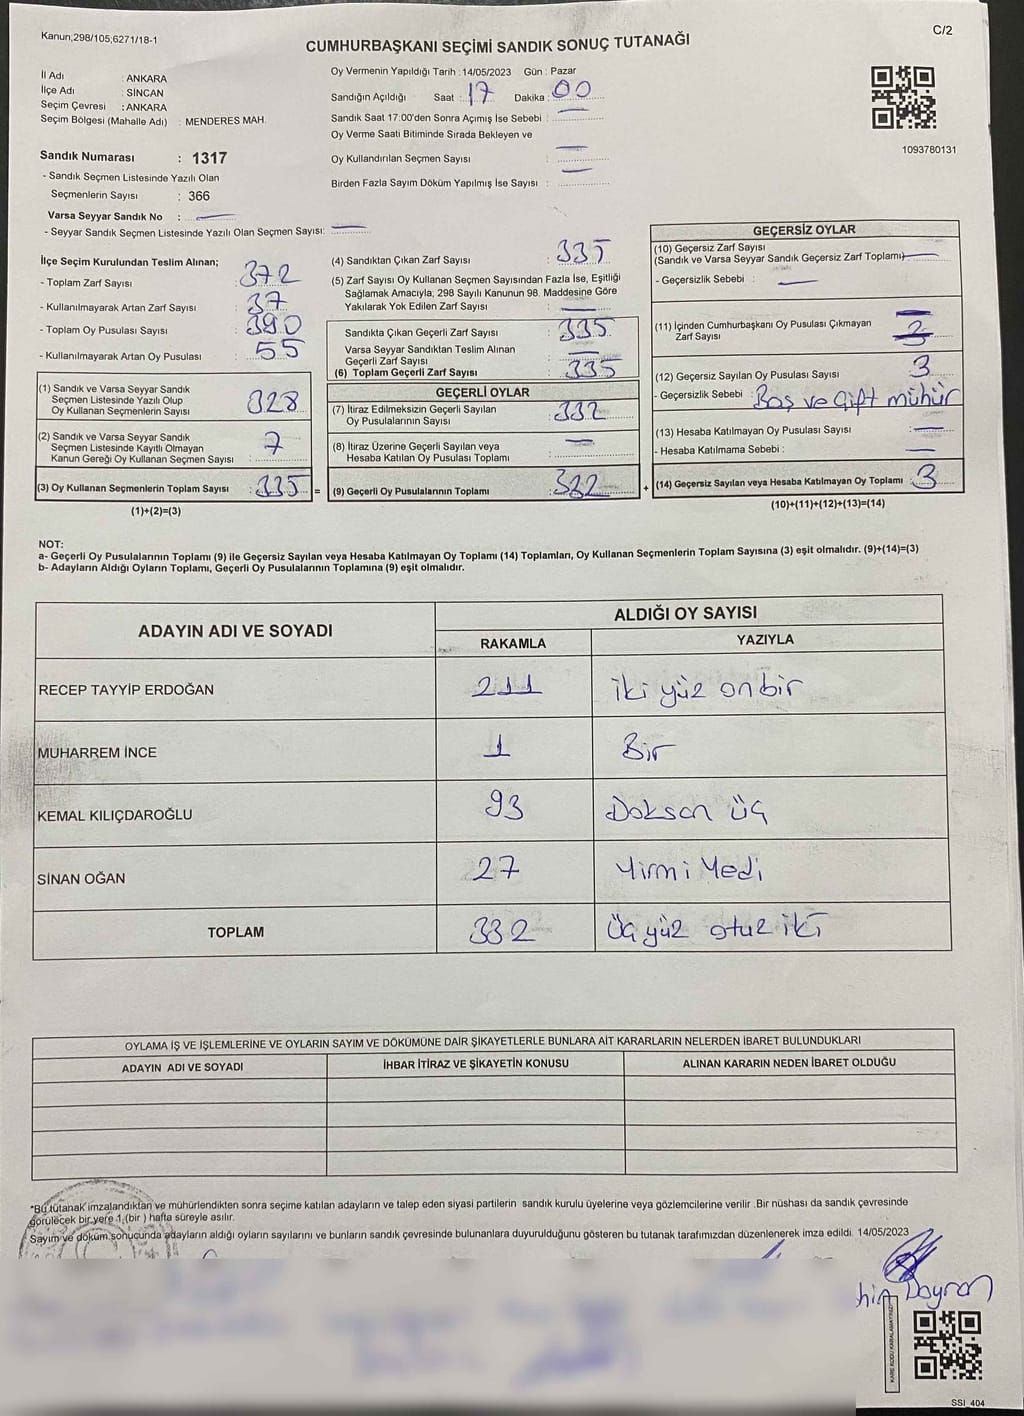 Kanun;298/105;6271/18-1
C/2
CUMHURBAŞKANI SEÇİMİ SANDIK SONUÇ TUTANAĞI
İl Adı : ANKARA
İlçe Adı : SİNCAN
Seçim Çevresi : ANKARA
Seçim Bölgesi (Mahalle Adı) : MENDERES MAH.
Sandık Numarası : 1317
- Sandık Seçmen Listesinde Yazılı Olan
Seçmenlerin Sayısı : 366
Varsa Seyyar Sandık No : —
- Seyyar Sandık Seçmen Listesinde Yazılı Olan Seçmen Sayısı: —
Oy Vermenin Yapıldığı Tarih : 14/05/2023 Gün : Pazar
Sandığın Açıldığı Saat : 17 Dakika : 00
Sandık Saat 17:00'den Sonra Açımış İse Sebebi : —
Oy Verme Saati Bitiminde Sırada Bekleyen ve
Oy Kullandırılan Seçmen Sayısı : —
Birden Fazla Sayım Döküm Yapılmış İse Sayısı : —
1093780131
İlçe Seçim Kurulundan Teslim Alınan;
- Toplam Zarf Sayısı : 372
- Kullanılmayarak Artan Zarf Sayısı : 37
- Toplam Oy Pusulası Sayısı : 390
- Kullanılmayarak Artan Oy Pusulası : 55
(1) Sandık ve Varsa Seyyar Sandık
Seçmen Listesinde Yazılı Olup
Oy Kullanan Seçmenlerin Sayısı : 328
(2) Sandık ve Varsa Seyyar Sandık
Seçmen Listesinde Kayıtlı Olmayan
Kanun Gereği Oy Kullanan Seçmen Sayısı : 7
(3) Oy Kullanan Seçmenlerin Toplam Sayısı : 335 =
(1)+(2)=(3)
(4) Sandıktan Çıkan Zarf Sayısı : 335
(5) Zarf Sayısı Oy Kullanan Seçmen Sayısından Fazla İse, Eşitliği
Sağlamak Amacıyla; 298 Sayılı Kanunun 98. Maddesine Göre
Yakılarak Yok Edilen Zarf Sayısı : —
Sandıkta Çıkan Geçerli Zarf Sayısı : 335
Varsa Seyyar Sandıktan Teslim Alınan
Geçerli Zarf Sayısı : —
(6) Toplam Geçerli Zarf Sayısı : 335
GEÇERLİ OYLAR
(7) İtiraz Edilmeksizin Geçerli Sayılan
Oy Pusulalarının Sayısı : 332
(8) İtiraz Üzerine Geçerli Sayılan veya
Hesaba Katılan Oy Pusulası Toplamı : —
(9) Geçerli Oy Pusulalarının Toplamı : 332 +
GEÇERSİZ OYLAR
(10) Geçersiz Zarf Sayısı
(Sandık ve Varsa Seyyar Sandık Geçersiz Zarf Toplamı) —
- Geçersizlik Sebebi : —
(11) İçinden Cumhurbaşkanı Oy Pusulası Çıkmayan
Zarf Sayısı : —
(12) Geçersiz Sayılan Oy Pusulası Sayısı : 3
- Geçersizlik Sebebi : Boş ve çift mühür
(13) Hesaba Katılmayan Oy Pusulası Sayısı : —
- Hesaba Katılmama Sebebi : —
(14) Geçersiz Sayılan veya Hesaba Katılmayan Oy Toplamı : 3
(10)+(11)+(12)+(13)=(14)
NOT:
a- Geçerli Oy Pusulalarının Toplamı (9) ile Geçersiz Sayılan veya Hesaba Katılmayan Oy Toplamı (14) Toplamları, Oy Kullanan Seçmenlerin Toplam Sayısına (3) eşit olmalıdır. (9)+(14)=(3)
b- Adayların Aldığı Oyların Toplamı, Geçerli Oy Pusulalarının Toplamına (9) eşit olmalıdır.
ADAYIN ADI VE SOYADI
ALDIĞI OY SAYISI
RAKAMLA YAZIYLA
RECEP TAYYİP ERDOĞAN 211 iki yüz on bir
MUHARREM İNCE 1 Bir
KEMAL KILIÇDAROĞLU 93 Doksan üç
SİNAN OĞAN 27 Yirmi Yedi
TOPLAM 332 Üç yüz otuz iki
OYLAMA İŞ VE İŞLEMLERİNE VE OYLARIN SAYIM VE DÖKÜMÜNE DAİR ŞİKAYETLERLE BUNLARA AİT KARARLARIN NELERDEN İBARET BULUNDUKLARI
ADAYIN ADI VE SOYADI İHBAR İTİRAZ VE ŞİKAYETİN KONUSU ALINAN KARARIN NEDEN İBARET OLDUĞU
*Bu tutanak imzalandıktan ve mühürlendikten sonra seçime katılan adayların ve talep eden siyasi partilerin sandık kurulu üyelerine veya gözlemcilerine verilir. Bir nüshası da sandık çevresinde
görülecek bir yere 1 (bir) hafta süreyle asılır.
Sayım ve döküm sonucunda adayların aldığı oyların sayılarını ve bunların sandık çevresinde bulunanlara duyurulduğunu gösteren bu tutanak tarafımızdan düzenlenerek imza edildi. 14/05/2023
SSI_404